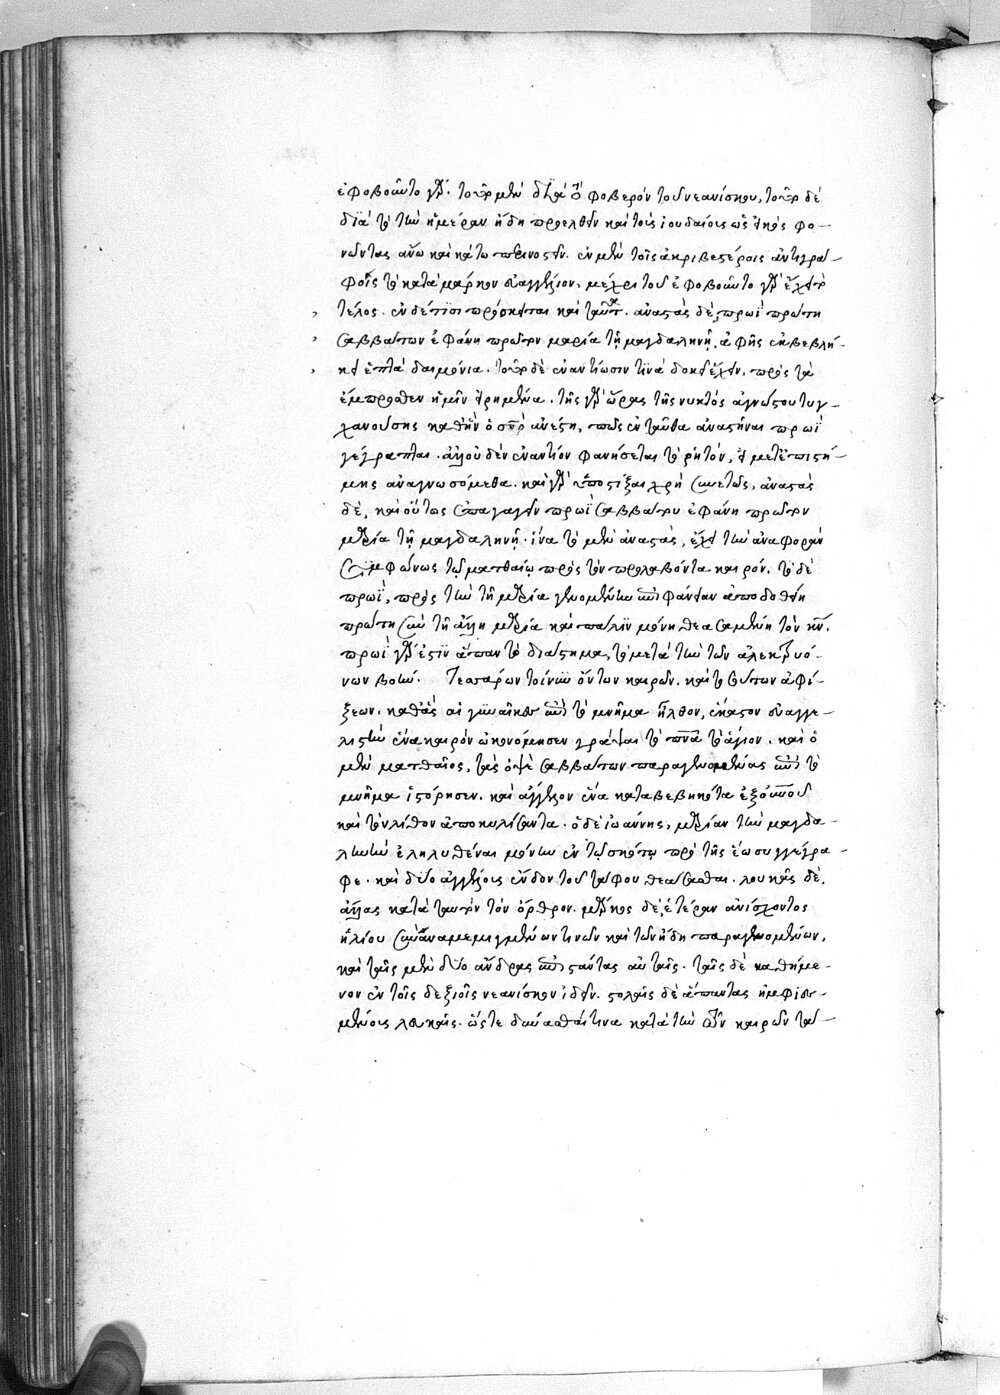 ἐφοβοῦντο γάρ. τοῦτο μὲν διὰ τὸ φοβερὸν τοῦ νεανίσκου, τοῦτο δὲ
διὰ τὸ τὴν ἡμέραν ἤδη προελθεῖν καὶ τοὺς ἰουδαίους ὡς εἰκὸς φο-
νῶντας ἄνω καὶ κάτω περινοστεῖν. ἐν μὲν τοῖς ἀκριβεστέροις ἀντιγρά-
φοις τὸ κατὰ μάρκον εὐαγγέλιον, μέχρι τοῦ ἐφοβοῦντο γὰρ ἔχει τὸ
τέλος. ἐν δέ τισι πρόσκειται καὶ ταῦτα. ἀναστὰς δὲ πρωῒ πρώτῃ
σαββάτων ἐφάνη πρῶτον μαρία τῇ μαγδαληνῇ, ἀφ' ἧς ἐκβεβλή-
κει ἑπτὰ δαιμόνια. τοῦτο δὲ ἐναντίωσίν τινα δοκεῖ ἔχειν, πρὸς τὰ
ἔμπροσθεν ἡμῖν εἰρημένα. τῆς γὰρ ὥρας τῆς νυκτὸς ἀγνώστου τυγ-
χανούσης καθ' ἣν ὁ σωτὴρ ἀνέστη, πῶς ἐνταῦθα ἀναστῆναι πρωῒ
γέγραπται. ἀλλ' οὐδὲν ἐναντίον φανήσεται τὸ ῥητόν, εἰ μετ' ἐπιστή-
μης ἀναγνωσόμεθα. καὶ γὰρ ὑποστίξαι χρὴ συνετῶς, ἀναστὰς
δὲ, καὶ οὕτως ἐπαγαγεῖν πρωῒ σαββάτου ἐφάνη πρῶτον
μαρία τῇ μαγδαληνῇ. ἵνα τὸ μὲν ἀναστὰς, ἔχῃ τὴν ἀναφορὰν
συμφώνως τῷ ματθαίῳ πρὸς τὸν προλαβόντα καιρόν. τὸ δὲ
πρωῒ, πρὸς τὴν τῇ μαρία γενομένην ἐπιφάνειαν ἀποδοθείη
πρώτη σὺν τῇ ἄλλῃ μαρία καὶ πάλιν μόνη θεασαμένη τὸν κν.
πρωῒ γάρ ἐστιν ἅπαν τὸ διάστημα, τὸ μετὰ τὴν τῶν ἀλεκτρυό-
νων βοήν. Τεσσάρων τοίνυν ὄντων καιρῶν, καὶ τοσούτων ἀφί-
ξεων, καθ' ἃς αἱ γυναῖκες ἐπὶ τὸ μνῆμα ἦλθον, ἕκαστον εὐαγγε-
λιστὴν ἕνα καιρὸν ᾠκονόμησεν γράψαι τὸ πνα τὸ ἅγιον. καὶ ὁ
μὲν ματθαῖος, τὰς ὀψὲ σαββάτων παραγενομένας ἐπὶ τὸ
μνῆμα ἱστόρησεν. καὶ ἄγγελον ἕνα καταβεβηκότα ἐξ οὐνοῦ
καὶ τὸν λίθον ἀποκυλίσαντα. ὁ δὲ ἰωάννης, μαρίαν τὴν μαγδα-
ληνὴν ἐληλυθέναι μόνην ἐν τῷ σκότῳ πρὸ τῆς ἕω συγγέγρα-
φε. καὶ δύο ἀγγέλους ἔνδον τοῦ τάφου θεάσασθαι. λουκᾶς δὲ,
ἄλλας κατὰ ταυτὸν τὸν ὄρθρον. μάρκος δὲ, ἑτέραν ἀνίσχοντος
ἡλίου συναναμεμιγμένων τινῶν καὶ τῶν ἤδη παραγενομένων,
καὶ ταῖς μὲν δύο ἄνδρας ἐπιστάντας αὐταῖς. ταῖς δὲ καθήμε-
νον ἐν τοῖς δεξιοῖς νεανίσκον ἰδεῖν. στολὰς δὲ ἅπαντας ἠμφιε-
μένους λευκάς. ὥστε δύνασθαί τινα κατὰ τὴν τῶν καιρῶν τά-